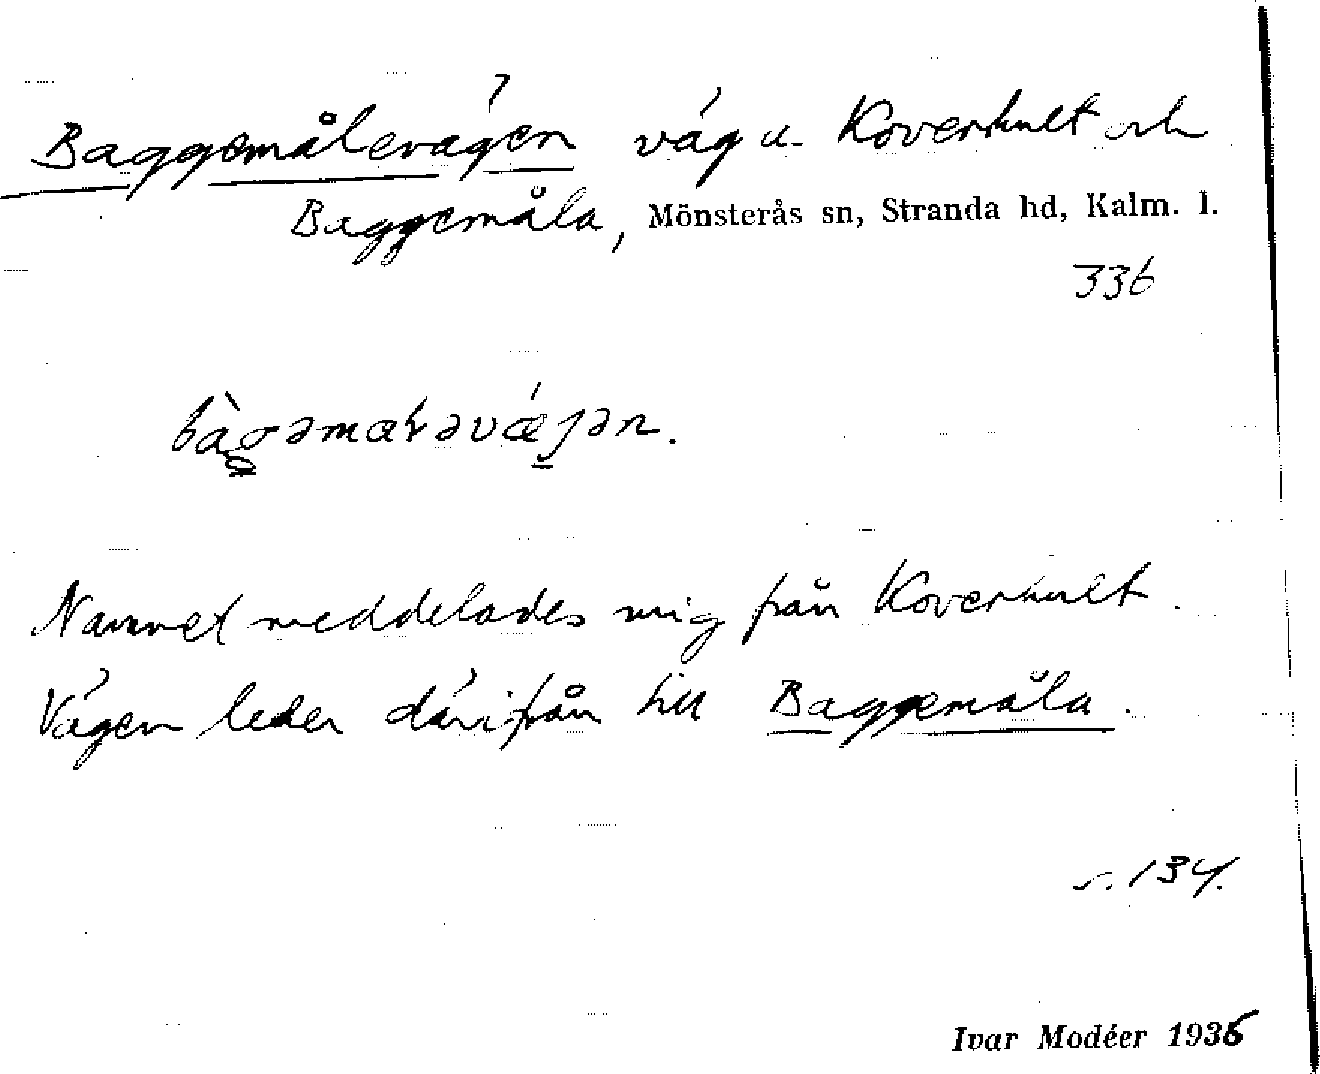 Baggemålevägen väg u. Koverhult och
Baggemåla, Mönsterås sn, Stranda hd, Kalm. l.
336
Namnet meddelades mig från Koverhult.
Vägen leder därifrån till Baggemåla.
s. 134.
Ivar Modéer 1936